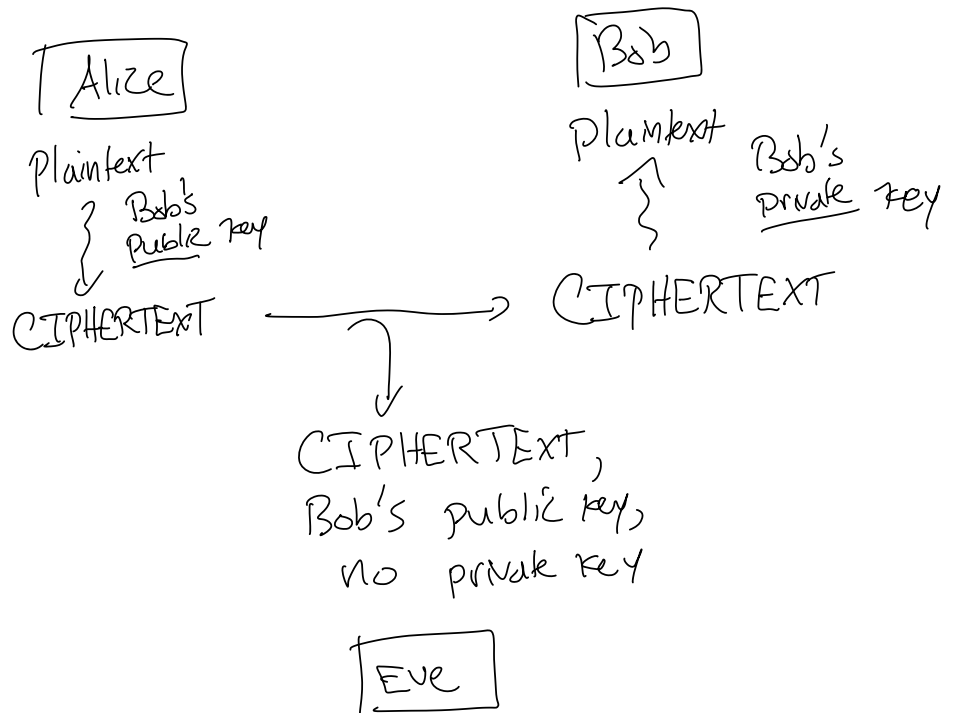 Alice
Plaintext
Bob's
public key
CIPHERTEXT
Bob
Plaintext
Bob's
private key
CIPHERTEXT
CIPHERTEXT,
Bob's public key,
no private key
Eve